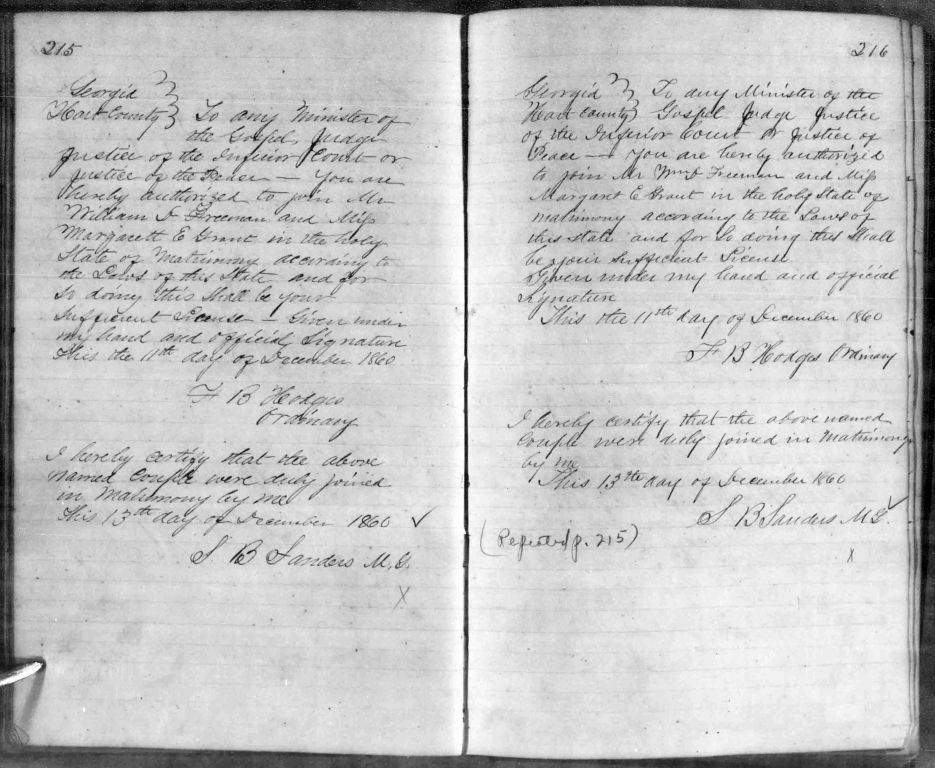 215
Georgia }
Hart County } To any Minister of
the Gospel, Judge
Justice of the Inferior Court or
Justice of the Peace – You are
hereby authorized to join Mr
William D Freeman and Miss
Margarett E Grant in the holy
State of Matrimony according to
the Laws of this State and for
so doing this Shall be your
Sufficient License – Given under
my hand and official Signature
This the 11th day of December 1860
F B Hodges
Ordinary
I hereby certify that the above
named Couple were duly joined
in Matrimony by me
This 13th day of December 1860 ✓
S. B Sanders M. G.
X
216
Georgia } To any Minister of the
Hart County } Gospel Judge Justice
of the Inferior Court or Justice of
Peace – You are hereby authorized
to join Mr Wm D Freeman and Miss
Margaret E Grant in the holy State of
matrimony according to the Laws of
this State and for So doing this Shall
be your Sufficient License
Given under my hand and official
Signature
This the 11th day of December 1860
F B Hodges Ordinary
I hereby certify that the above named
Couple were duly joined in Matrimony
by me
This 13th day of December 1860
S B Sanders M G ✓
(Repeated p. 215)
X